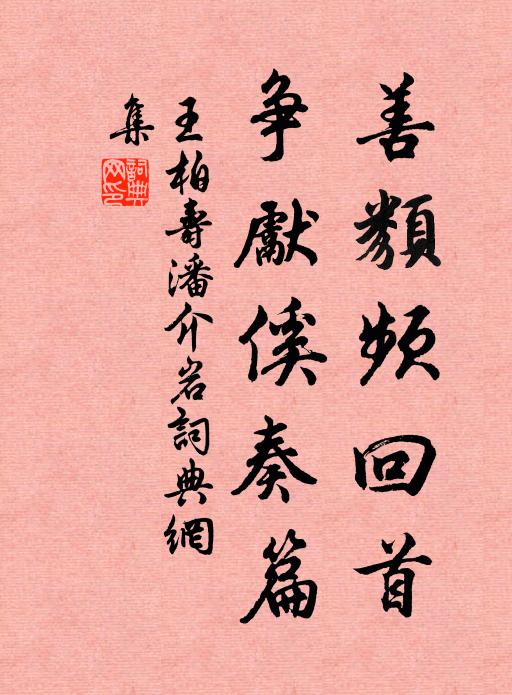 善類頻回首
争獻傒奏篇
王柏壽潘介岩詞典網
集
詞典网印